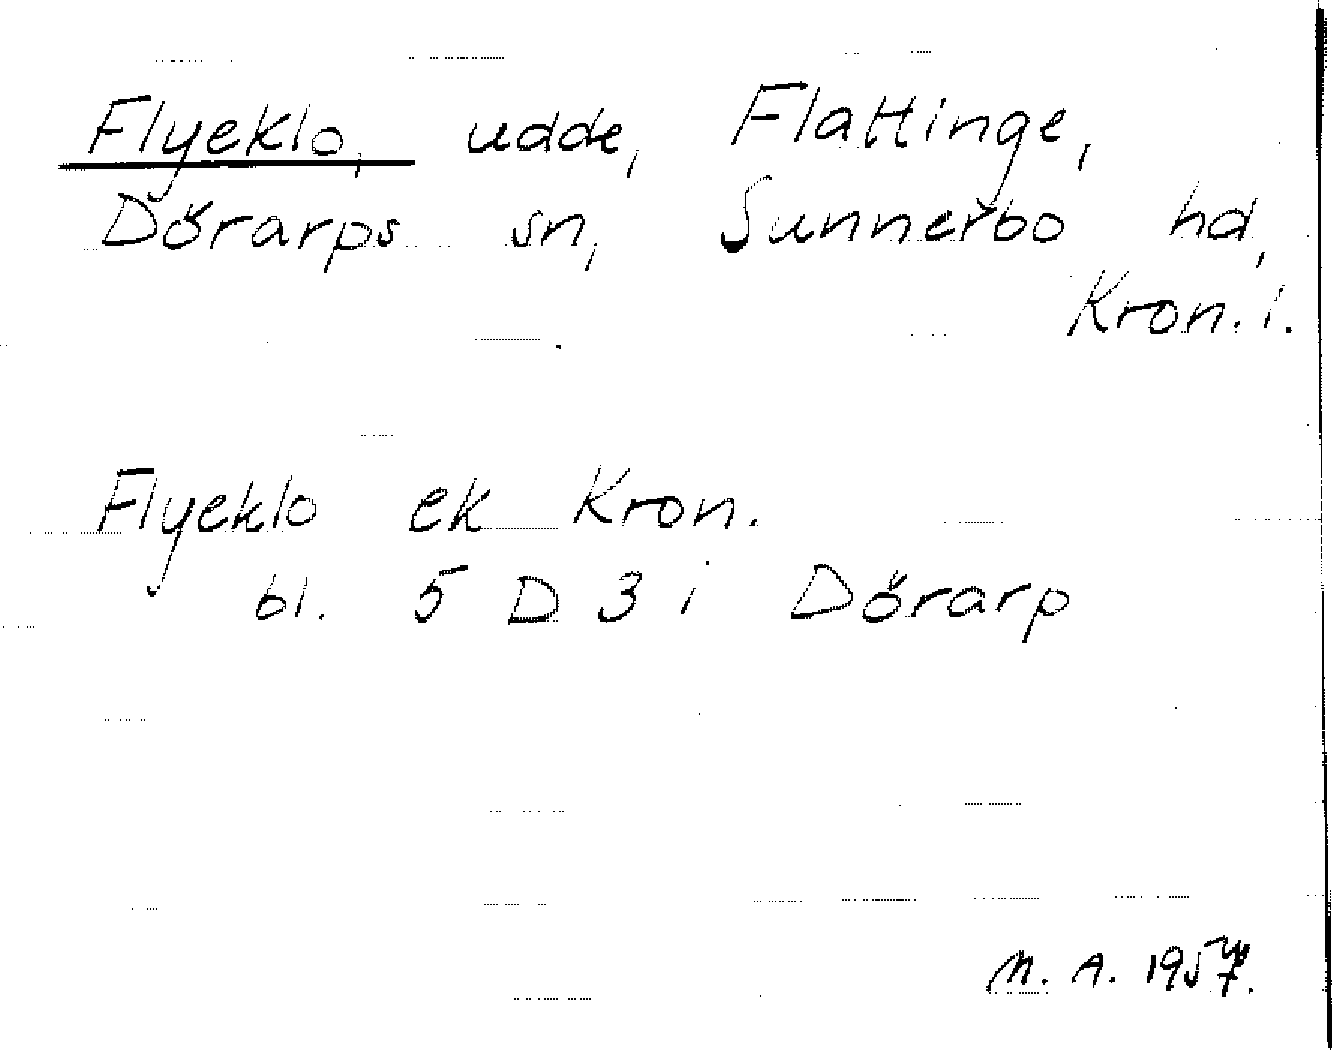 Flyeklo, udde, Flattinge,
Dörarps sn, Sunnerbo hd,
Kron. l.
Flyeklo ek Kron.
bl. 5 D 3 i Dörarp
M. A. 1957.